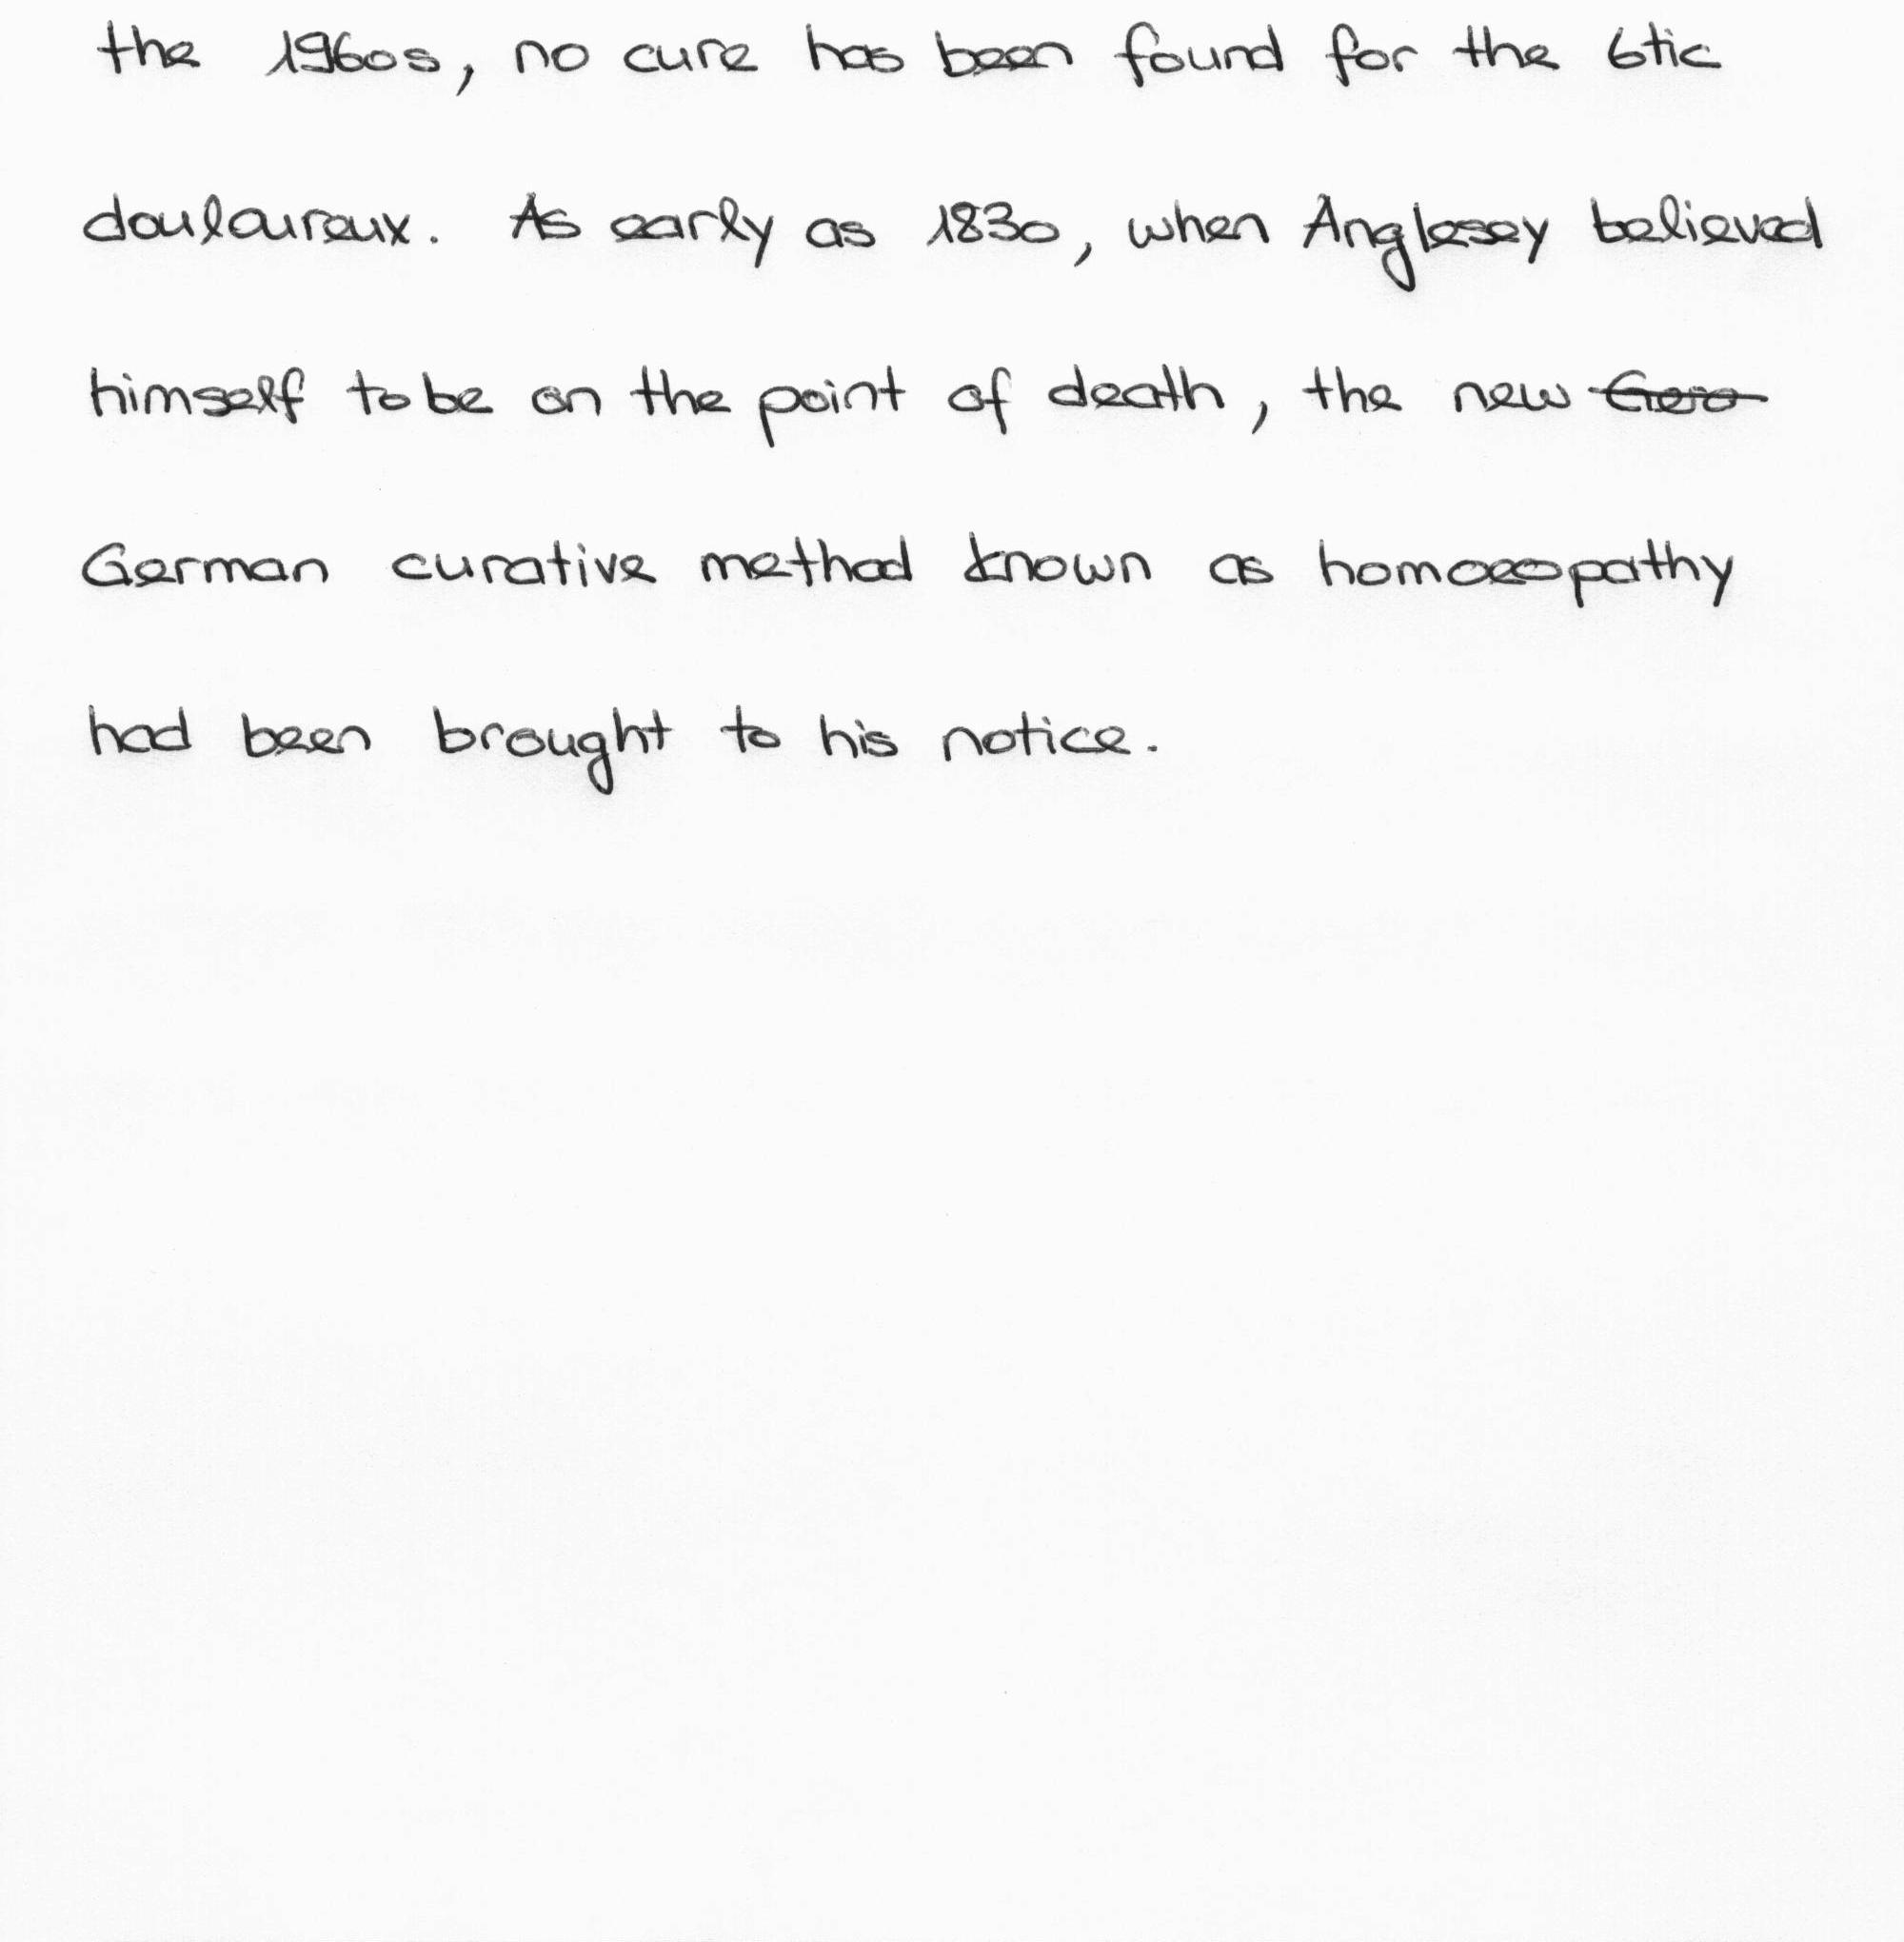 the 1960s, no cure has been found for the 6tic
douloureux. As early as 1830, when Anglesey believed
himself to be on the point of death, the new
German curative method known as homoeopathy
had been brought to his notice.